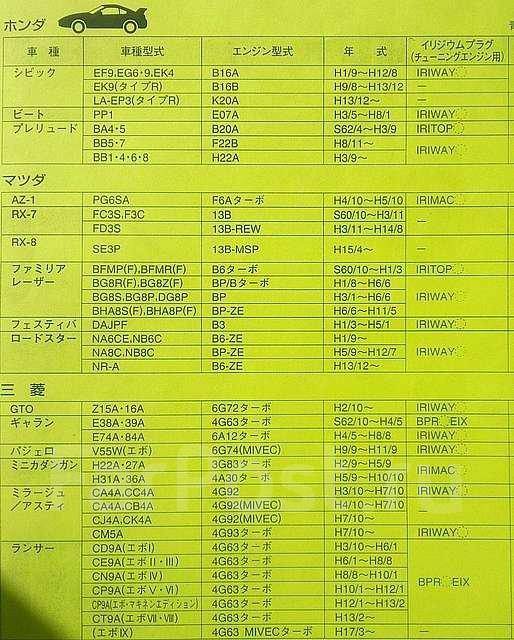 ホンダ
車種 車種型式 エンジン型式 年式 イリジウムプラグ(チューニングエンジン用)
シビック EF9,EG6・9,EK4 B16A H1/9~H12/8 IRIWAY
EK9(タイプR) B16B H9/8~H13/12 —
LA-EP3(タイプR) K20A H13/12~ —
ビート PP1 E07A H3/5~H8/1 IRIWAY
プレリュード BA4・5 B20A S62/4~H3/9 IRITOP
BB5・7 F22B H8/11~ IRIWAY
BB1・4・6・8 H22A H3/9~
マツダ
AZ-1 PG6SA F6Aターボ H4/10~H5/10 IRIMAC
RX-7 FC3S,F3C 13B S60/10~H3/11 —
FD3S 13B-REW H3/11~H14/8
RX-8 SE3P 13B-MSP H15/4~ —
ファミリア BFMP(F),BFMR(F) B6ターボ S60/10~H1/3 IRITOP
レーザー BG8R(F),BG8Z(F) BP/Bターボ H1/8~H6/6 IRIWAY
BG8S,BG8P,DG8P BP H3/1~H6/6
BHA8S(F),BHA8P(F) BP-ZE H6/6~H11/5
フェスティバ DAJPF B3 H1/3~H5/1 IRIWAY
ロードスター NA6CE,NB6C B6-ZE H1/9~ IRIWAY
NA8C,NB8C BP-ZE H5/9~H12/7
NR-A B6-ZE H13/12~
三菱
GTO Z15A・16A 6G72ターボ H2/10~ IRIWAY
ギャラン E38A・39A 4G63ターボ S62/10~H4/5 BPR EIX
E74A・84A 6A12ターボ H4/5~H8/8 IRIWAY
パジェロ V55W(エボ) 6G74(MIVEC) H9/9~H11/9 IRIWAY
ミニカダンガン H22A・27A 3G83ターボ H2/9~H5/9 IRIMAC
H31A・36A 4A30ターボ H5/9~H10/10
ミラージュ CA4A,CC4A 4G92 H3/10~H7/10 IRIWAY
/アスティ CA4A,CB4A 4G92(MIVEC) H4/10~H7/10
CJ4A,CK4A 4G92(MIVEC) H7/10~
CM5A 4G93ターボ H7/10~ IRIWAY
ランサー CD9A(エボI) 4G63ターボ H3/10~H6/1 BPR EIX
CE9A(エボII・III) 4G63ターボ H6/1~H8/8
CN9A(エボIV) 4G63ターボ H8/8~H10/1
CP9A(エボV・VI) 4G63ターボ H10/1~H12/1
CP9A(エボ・マキネンエディション) 4G63ターボ H12/1~H13/2
CT9A(エボVII・VIII) 4G63ターボ H13/2~
(エボIX) 4G63 MIVECターボ H17/3~ —